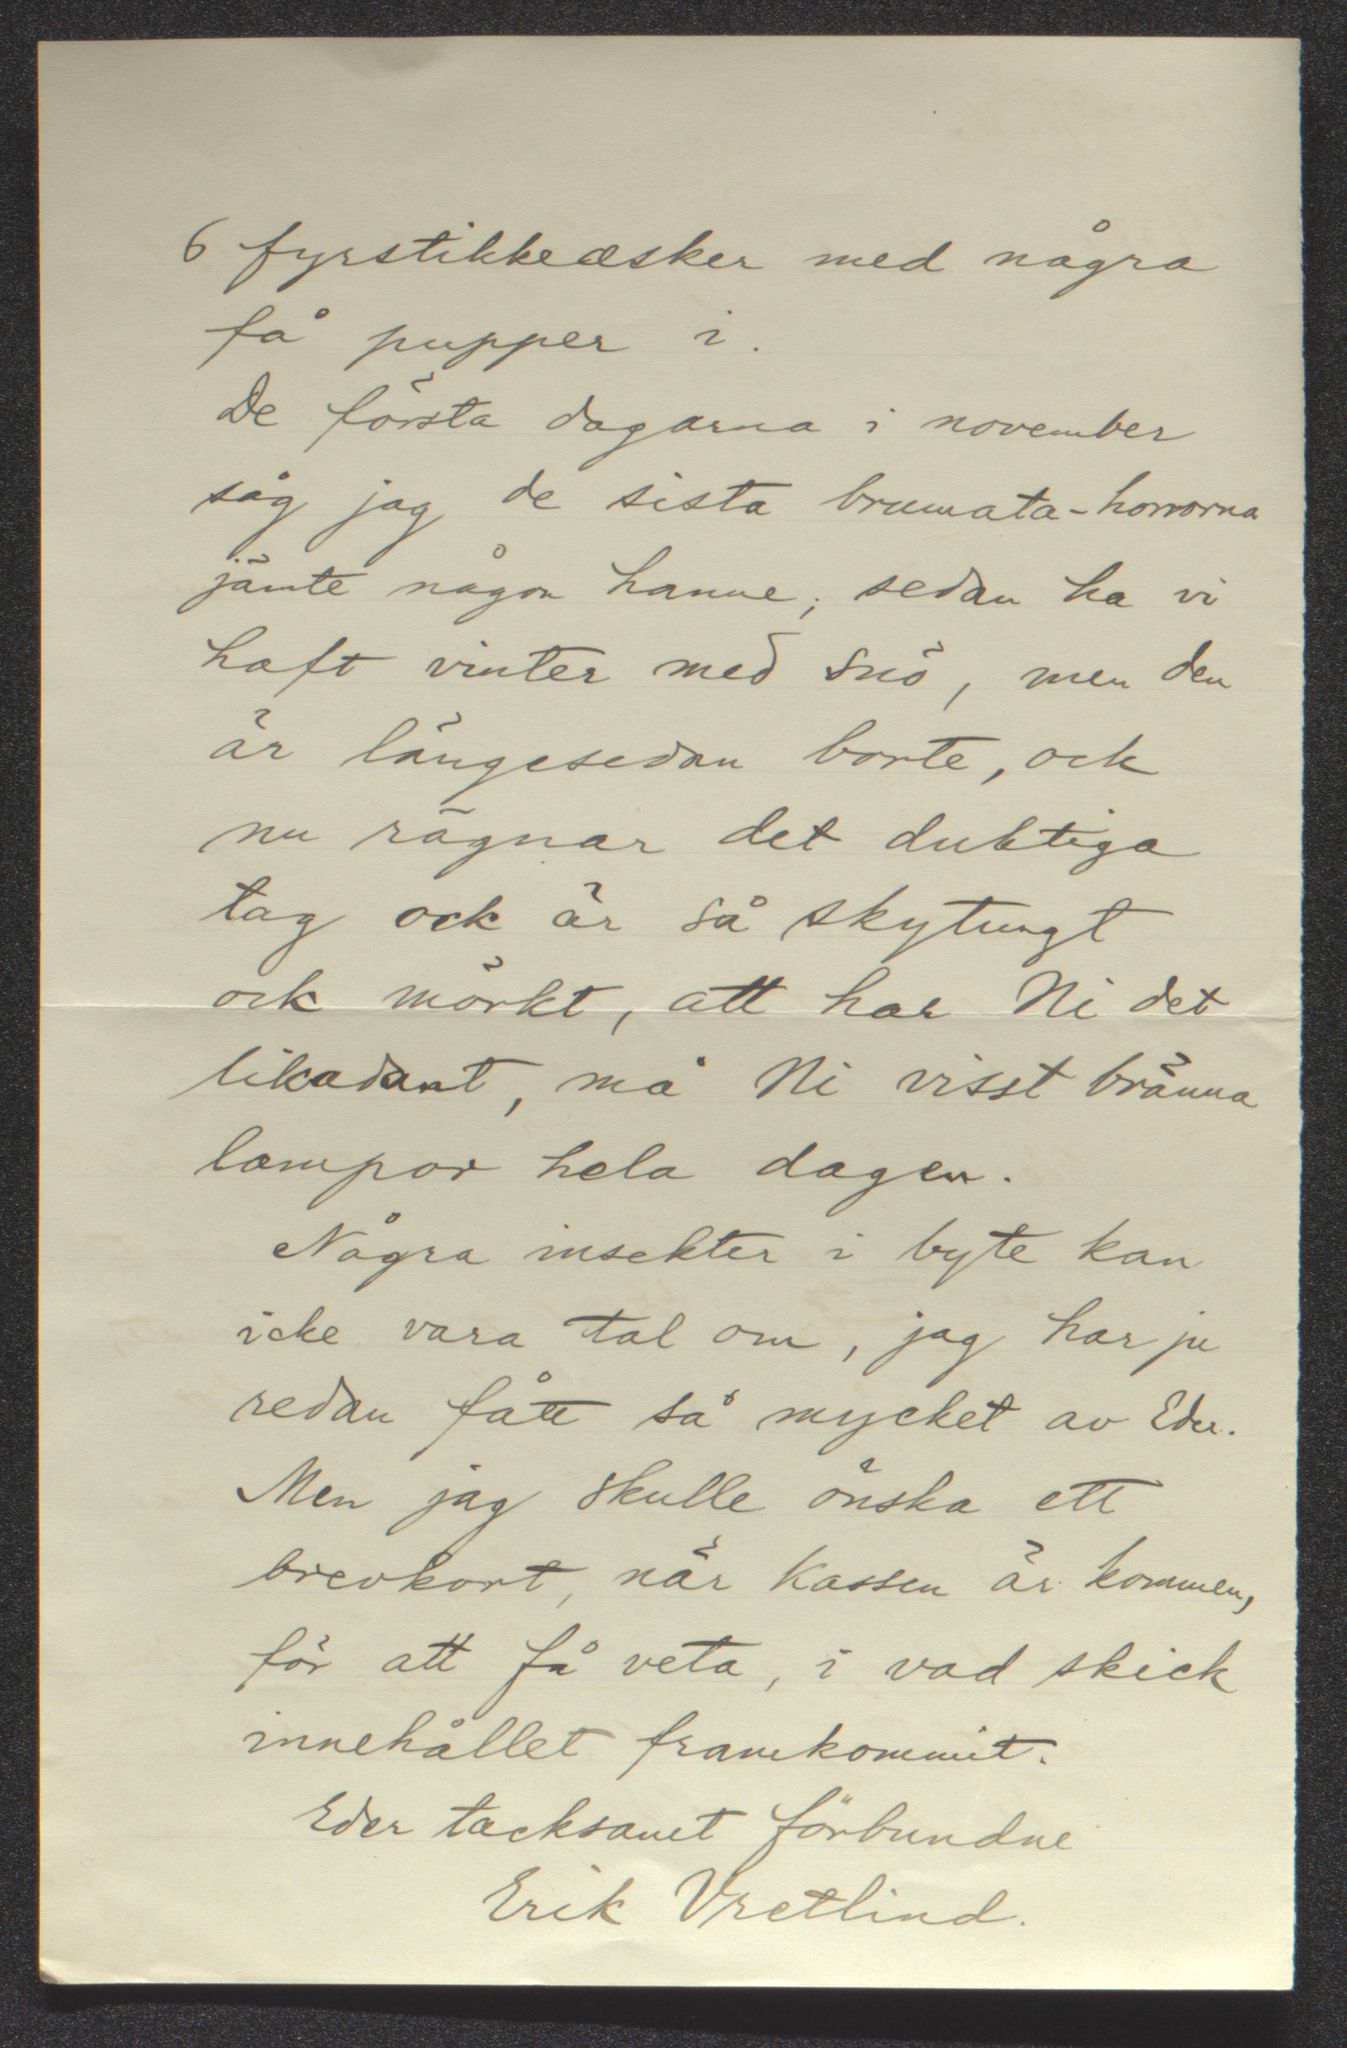 6 fyrstikkeæsker med några
få pupper i.
De första dagarna i november
såg jag de sista brumata-honorna
jämte någon hanne; sedan ha vi
haft vinter med snö, men den
är längesedan borte, ock
nu rägnar det duktiga
tag ock är så skytungt
ock mörkt, att har Ni det
likadant, må Ni visst bränna
lampor hela dagen.
Några insekter i byte kan
icke vara tal om, jag har ju
redan fått så mycket av Eder.
Men jag skulle önska ett
brevkort, när kassen är kommen,
för att få veta, i vad skick
innehållet framkommit.
Eder tacksamt förbundne
Erik Vretlind.